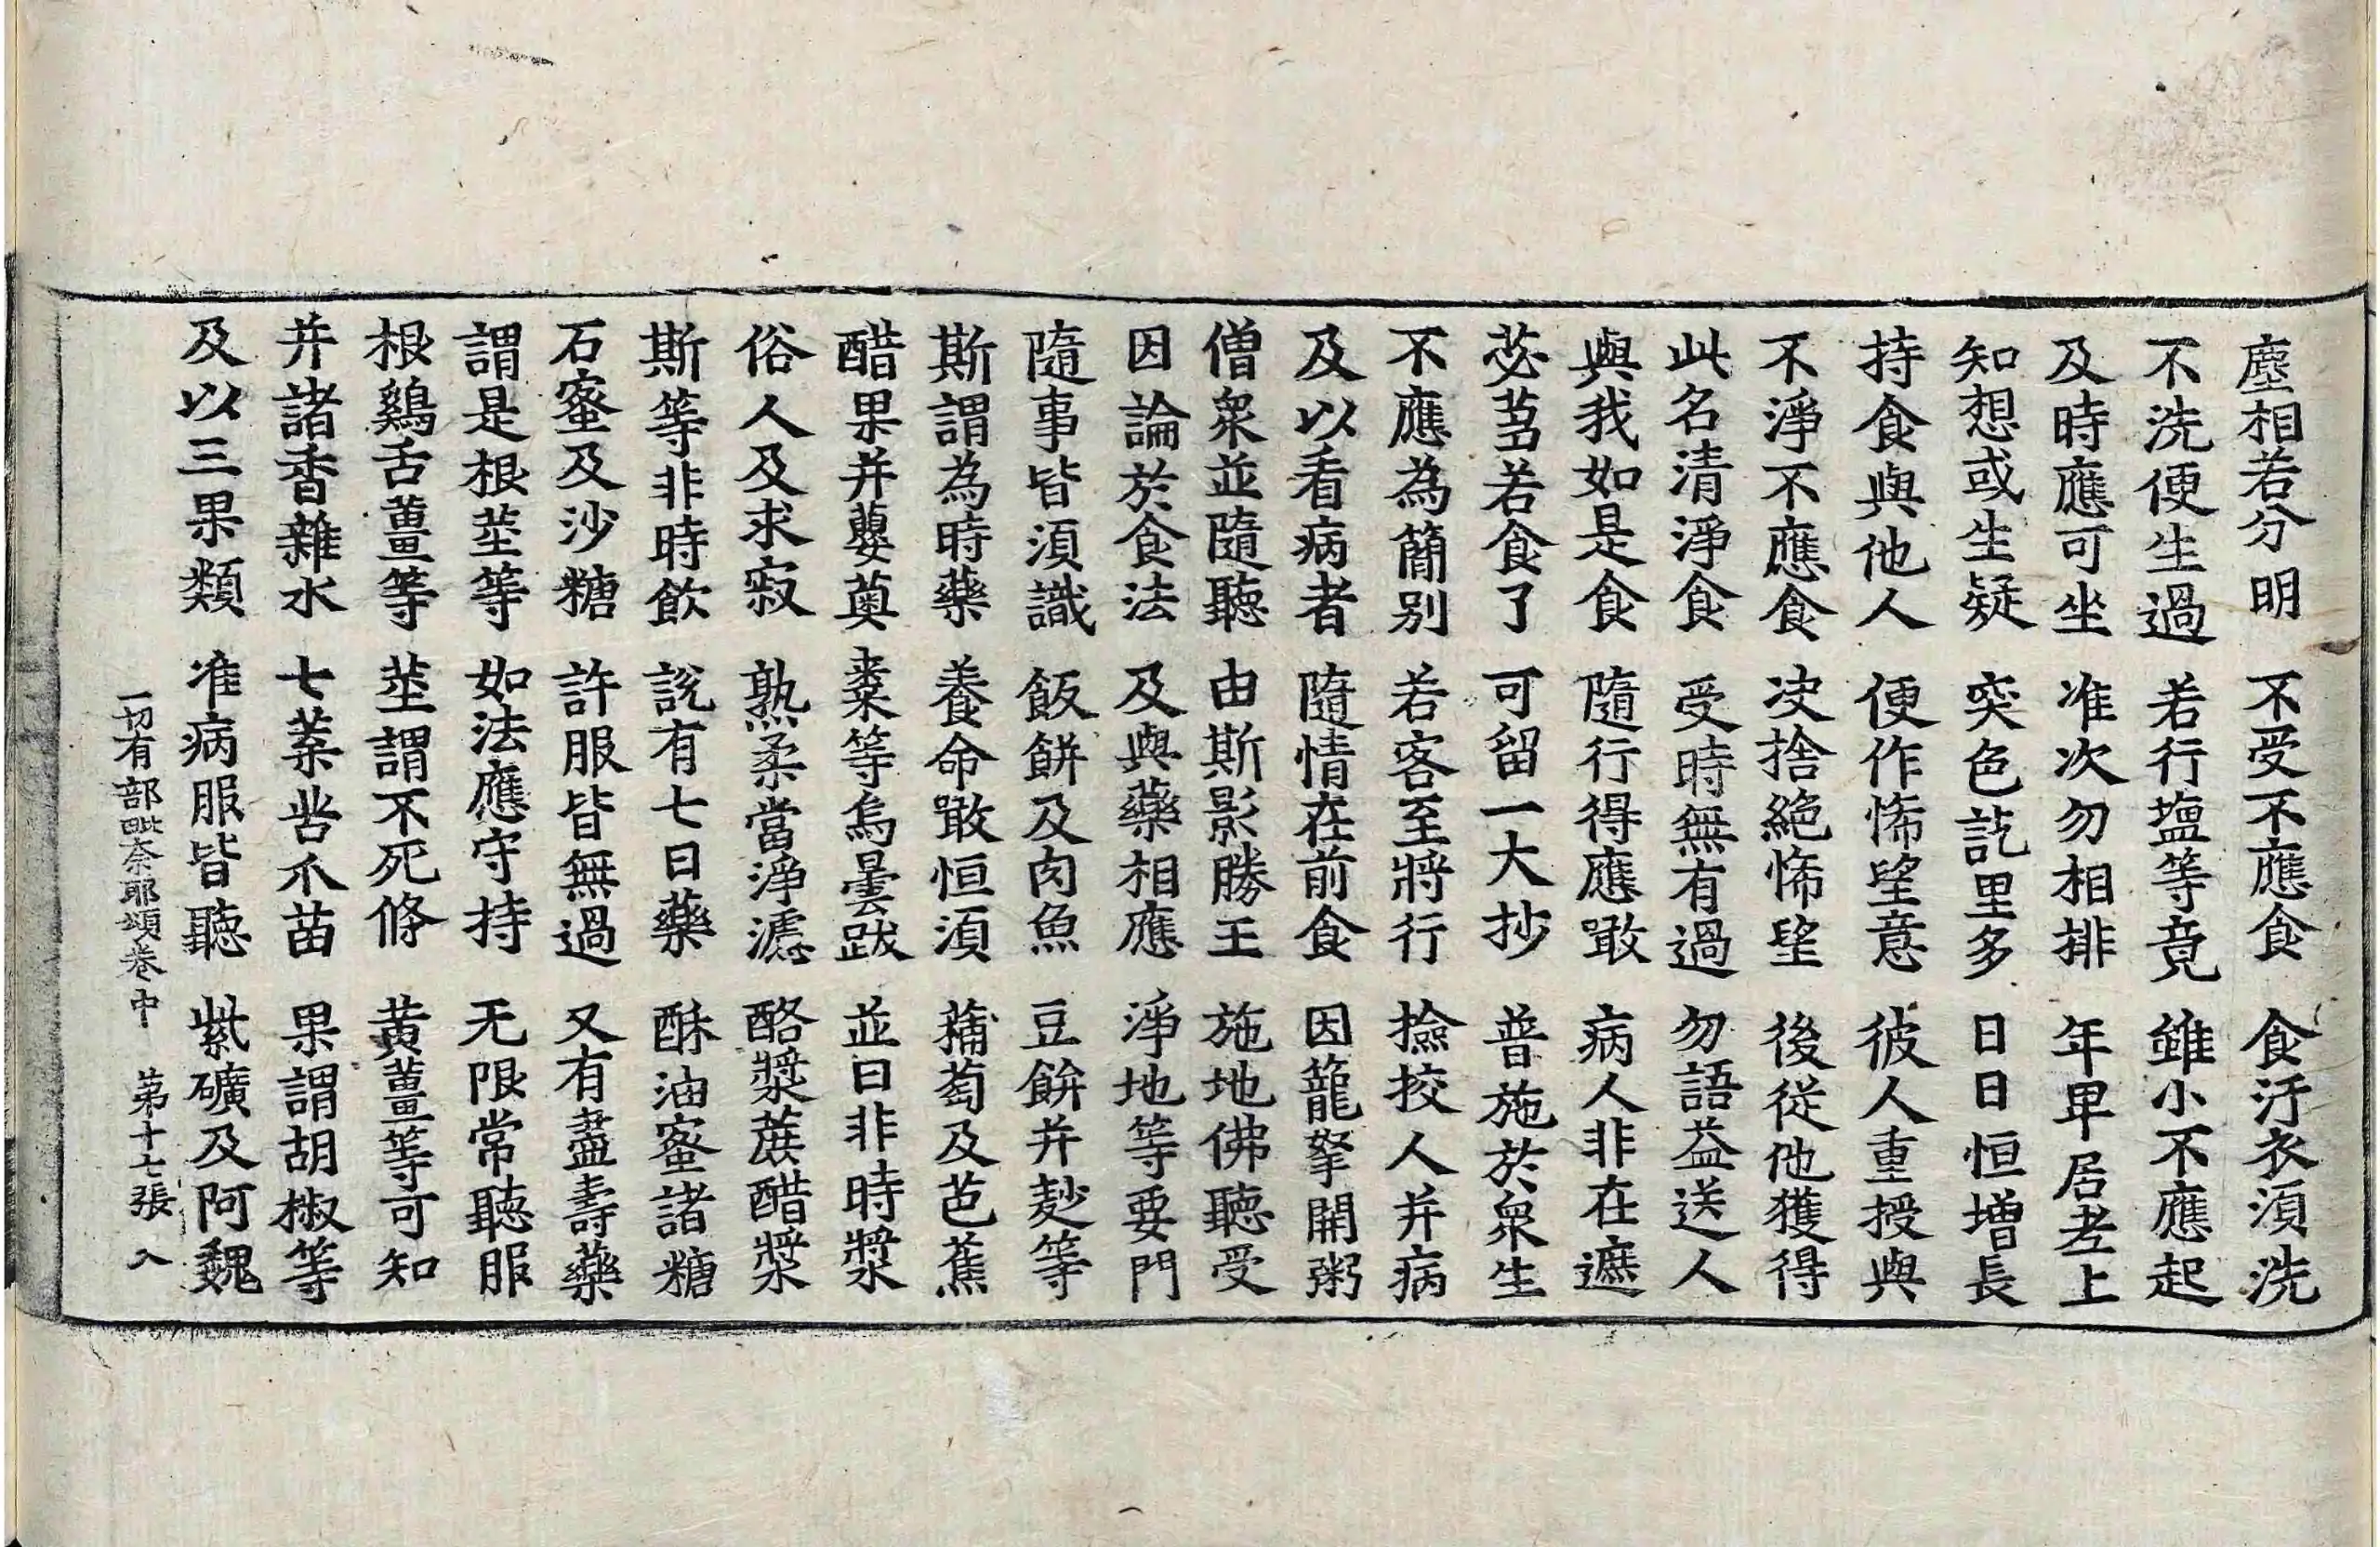 塵相若分明 不受不應食 食汙衣湏洗
不洗便生過 若行塩等竟 雖小不應起
及時應可坐 准次勿相排 年卑居老上
知想或生疑 突色訖里多 日日恒增長
持食與他人 便作悕望意 彼人重授與
不淨不應食 决捨絶悕望 後從他獲得
此名清淨食 受時無有過 勿語益送人
與我如是食 隨行得應噉 病人非在遮
苾芻若食了 可留一大抄 普施於衆生
不應為簡別 若客至將行 撿挍人并病
及以看病者 隨情在前食 因籠拏開粥
僧衆並隨聽 由斯影勝王 施地佛聽受
因論於食法 及與藥相應 淨地等要門
隨事皆湏識 飯餅及肉魚 豆餅并麨等
斯謂為時藥 養命噉恒湏 蒱萄及芭蕉
醋果并蘡薁 棗等烏曇跋 並曰非時漿
俗人及求寂 熟柔當淨濾 酪漿蔗醋漿
斯等非時飲 說有七日藥 酥油蜜諸糖
石蜜及沙糖 許服皆無過 又有盡壽藥
謂是根莖等 如法應守持 无限常聽服
根鷄舌薑等 莖謂不死條 黃薑等可知
并諸香雜水 七葉茈爪苗 果謂胡椒等
及以三果類 准病服皆聽 紫礦及阿魏
一切有部毗奈耶頌卷中 第十七張 入